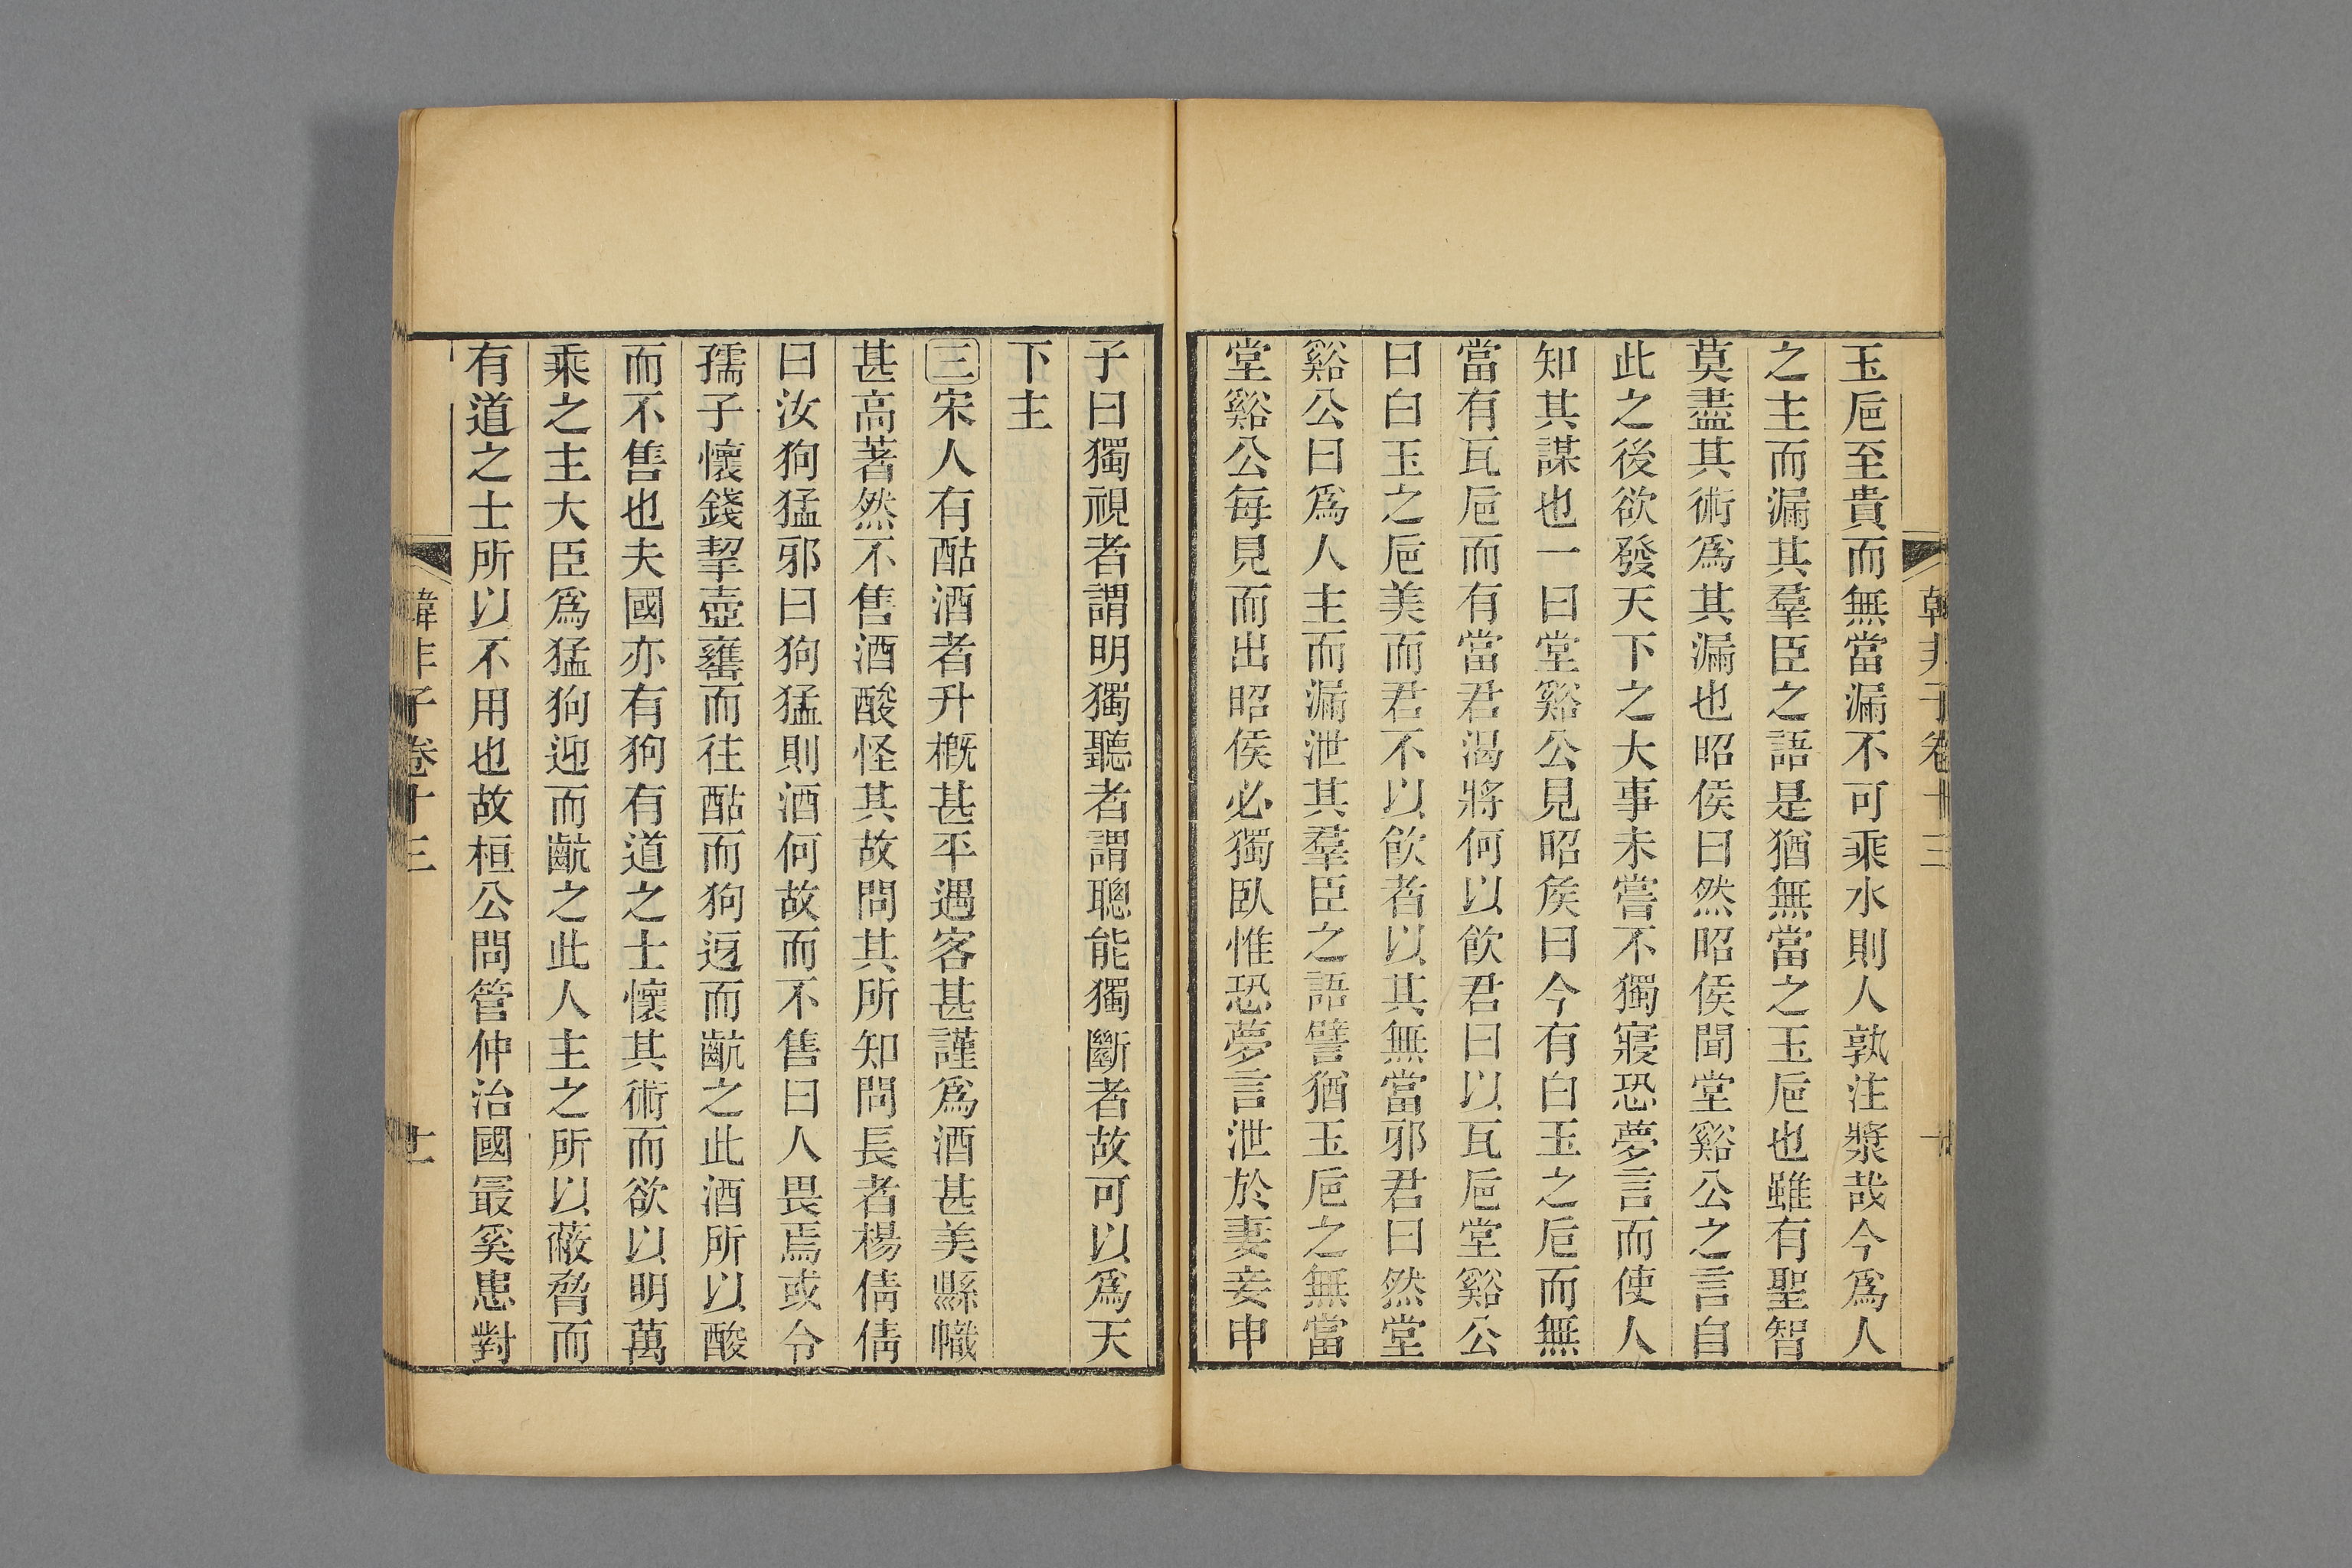 韓非子卷十三
玉巵至貴而無當漏不可乘水則人孰注漿哉今爲人
之主而漏其羣臣之語是猶無當之玉巵也雖有聖智
莫盡其術爲其漏也昭侯曰然昭侯聞堂谿公之言自
此之後欲發天下之大事未嘗不獨寢恐夢言而使人
知其謀也一曰堂谿公見昭侯曰今有白玉之巵而無
當有瓦巵而有當君渴將何以飮君曰以瓦巵堂谿公
曰白玉之巵美而君不以飮者以其無當邪君曰然堂
谿公曰爲人主而漏泄其羣臣之語譬猶玉巵之無當
堂谿公每見而出昭侯必獨臥惟恐夢言泄於妻妾申
子曰獨視者謂明獨聽者謂聰能獨斷者故可以爲天
下主
三宋人有酤酒者升槪甚平遇客甚謹爲酒甚美縣幟
甚高著然不售酒酸怪其故問其所知問長者楊倩倩
曰汝狗猛邪曰狗猛則酒何故而不售曰人畏焉或令
孺子懷錢挈壺甕而往酤而狗迓而齕之此酒所以酸
而不售也夫國亦有狗有道之士懷其術而欲以明萬
乘之主大臣爲猛狗迎而齕之此人主之所以蔽脅而
有道之士所以不用也故桓公問管仲治國最奚患對
韓非子卷十三